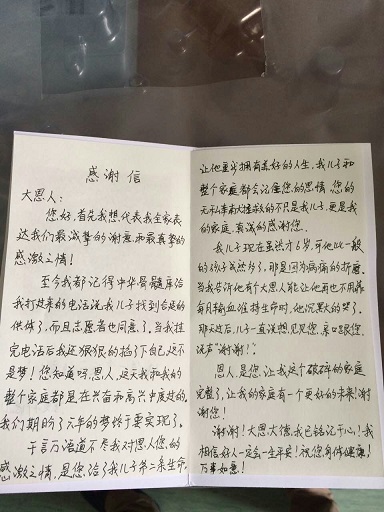 感谢信
大恩人：
您好，首先我想代表我全家表
达我们最诚挚的谢意和最真挚的
感激之情！
至今我都记得中华骨髓库给
我打来的电话说我儿子找到合适的
供体了，而且志愿者也同意了。当我挂
完电话后我还狠狠的掐了下自己这不
是梦！您知道吗恩人，这天我和我的
整个家庭都是在兴奋和高兴中度过的。
我们期盼了六年的梦终于要实现了。
千言万语道不尽我对恩人您的
感激之情，是您给了我儿子第二条生命，
让他重新拥有美好的人生，我儿子和
整个家庭都会记住您的恩情，您的
无私奉献大爱拯救的不只是我儿子，更是我
的家庭，真诚的感谢您。
我儿子现在虽然才6岁，可他比一般
的孩子成熟多了，那是因为病痛的折磨。
当我告诉他有个大恩人能让他再也不用靠
每月输血维持生命时，他沉默的哭了。
那天过后，儿子一直说想见见您，亲口跟您
说声"谢谢！"。
恩人，是您，让我这个破碎的家庭
完整了，让我的家庭有一个更好的未来！谢
谢您！
谢谢！大恩大德，我已铭记于心！我
相信好人一定会一生平安！祝您身体健康！
万事如意！